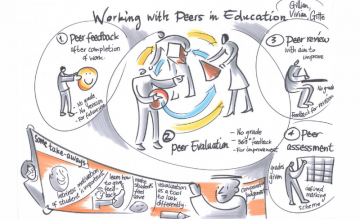 Working with Peers in Education
Gillian,
Vivian, Gitte
1 Peer feedback
after completion
of work.
- No grade
- No revision
- For future
3 Peer review
with aim to
improve
- No grade
- Feedback for revision
2 Peer Evaluation
- No grade
- feedback
- For improvement
4 Peer
assessment
grades
given
refined
marking
scheme
Some take-aways!
intrinsic motivation
of student is important
learn how
to give
make
students
feel
visualization
as a tool
to look
differently.